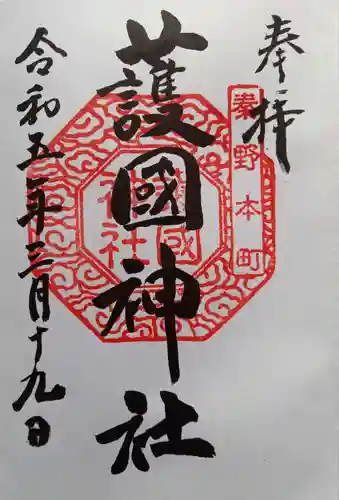 奉拝
秦野本町
護國神社
護國
神社
令和五年三月十九日